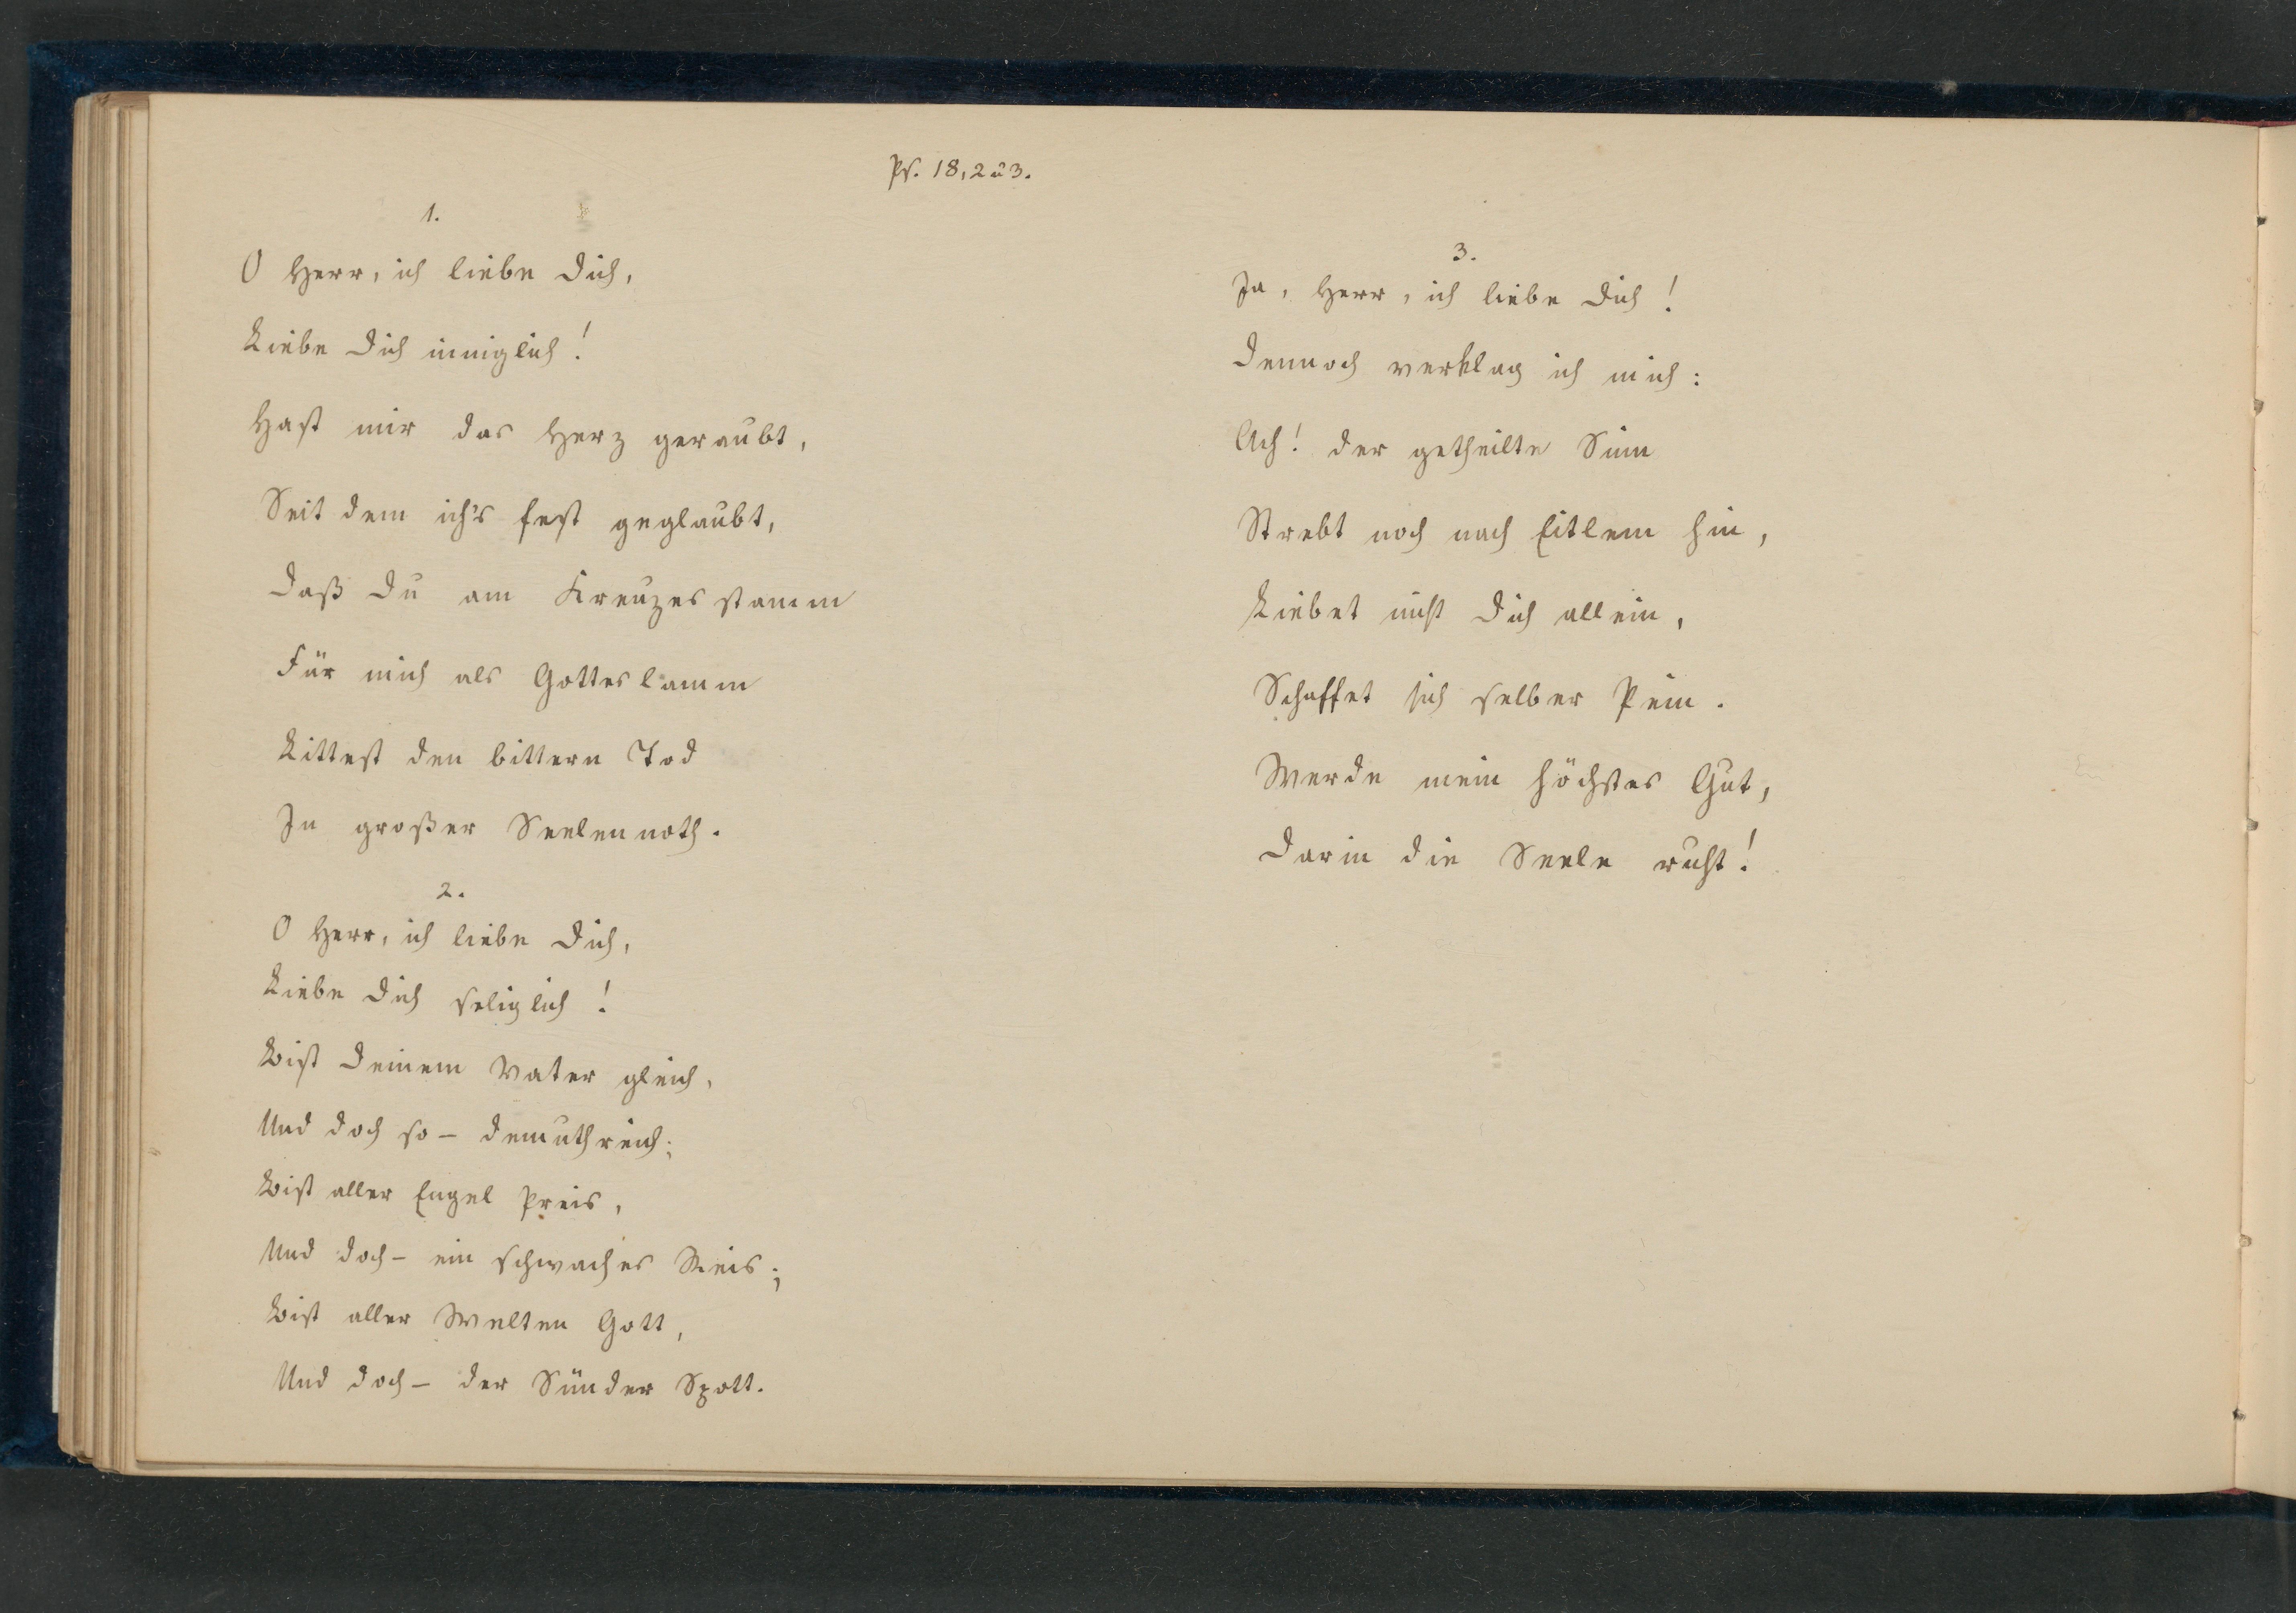 Ps. 18, 2 u 3.
1.
O Herr, ich liebe Dich,
Liebe Dich inniglich!
Hast mir das Herz geraubt,
Seit dem ich's fest geglaubt,
Daß Du am Kreuzesstamm
Für mich als Gotteslamm
Littest den bittern Tod
In großer Seelennoth.
2.
O Herr, ich liebe Dich,
Liebe Dich seliglich!
Bist Deinem Vater gleich,
Und doch so – demuthreich;
Bist aller Engel Preis,
Und doch – ein schwaches Reis;
Bist aller Welten Gott,
Und doch – der Sünder Spott.
3.
Ja, Herr, ich liebe Dich!
Dennoch verklag ich mich:
Ach! der getheilte Sinn
Strebt noch nach Eitlem hin,
Liebet nicht Dich allein,
Schaffet sich selber Pein.
Werde mein höchstes Gut,
Darin die Seele ruht!